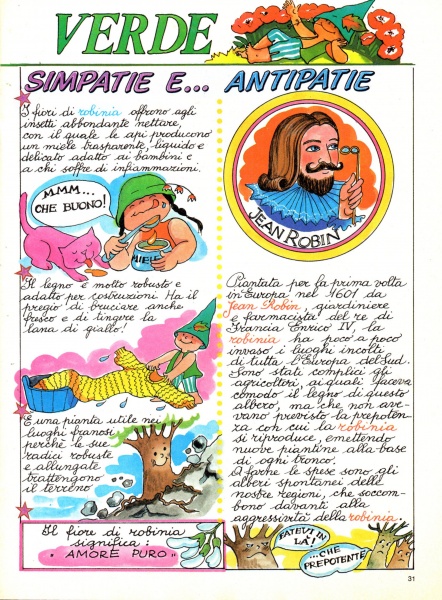 VERDE
SIMPATIE E... ANTIPATIE
I fiori di robinia offrono agli
insetti abbondante nettare,
con il quale le api producono
un miele trasparente, liquido e
delicato adatto ai bambini e
a chi soffre di infiammazioni.
M.M.M....
CHE BUONO!
MIELE
Il legno è molto robusto e
adatto per costruzioni. Ha il
pregio di bruciare anche
fresco e di tingere la
lana di giallo!
È una pianta utile nei
luoghi franosi
perchè le sue
radici robuste
e allungate
trattengono
il terreno
Il fiore di robinia
significa:
"AMORE PURO"
JEAN ROBIN
Piantata per la prima volta
in Europa nel 1601 da
Jean Robin, giardiniere
e farmacista del re di
Francia Enrico IV, la
robinia ha poco a poco
invaso i luoghi incolti
di tutta l'Europa del Sud.
Sono stati complici gli
agricoltori, ai quali faceva
comodo il legno di questo
albero, ma che non ave-
vano previsto la prepoten-
za con cui la robinia
si riproduce, emettendo
nuove piantine alla base
di ogni tronco.
A farne le spese sono gli
alberi spontanei delle
nostre regioni, che soccom-
bono davanti alla
aggressività della robinia.
FATEVI IN
LÀ!
...CHE
PREPOTENTE
31